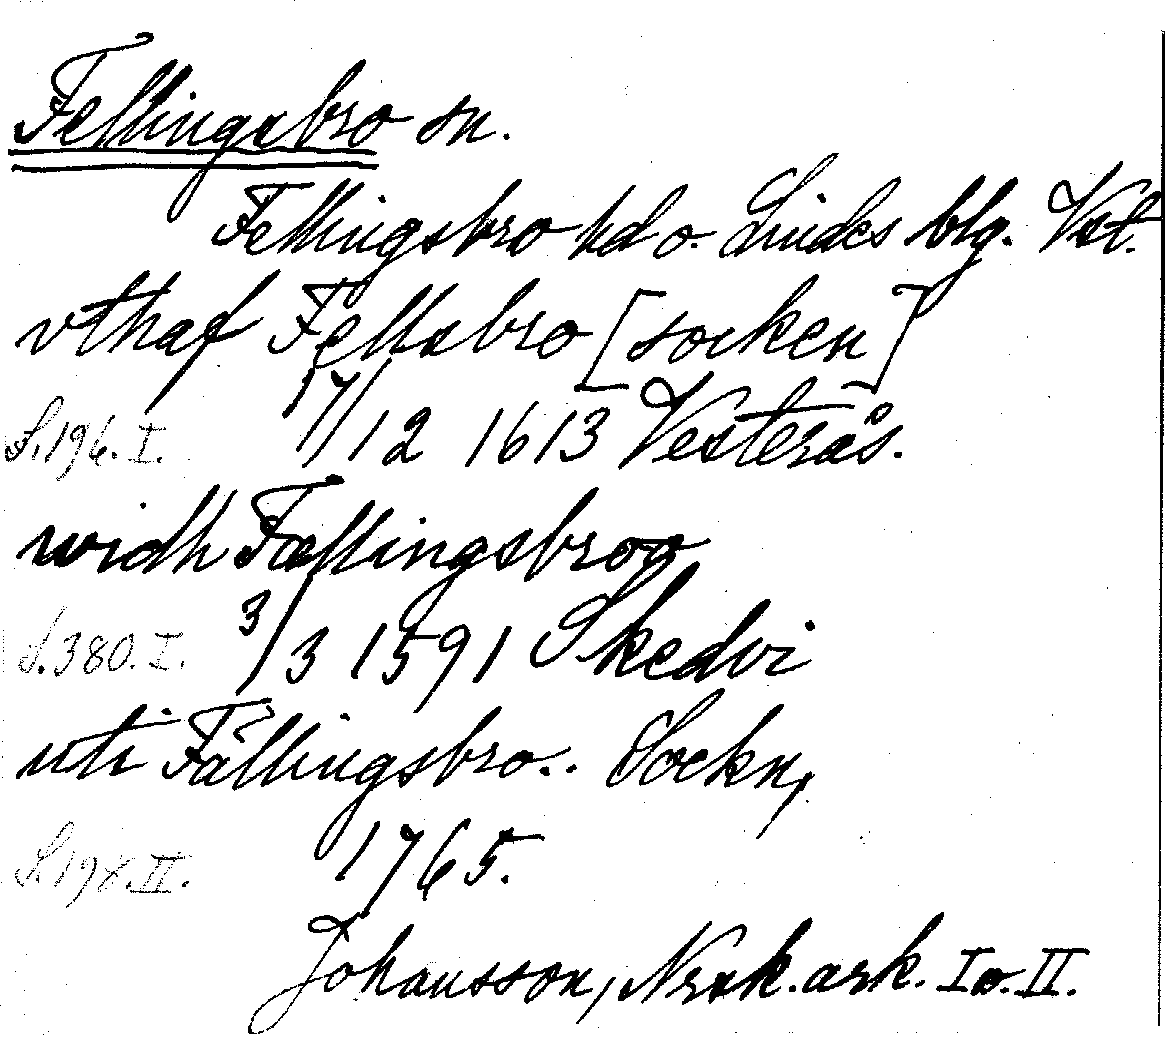 Fellingsbro sn.
Fellingsbro hd o. Lindes blg. Vst.
vthaf Fellsbro [socken]
S. 196. I. 17/12 1613 Vesterås.
widh Fællingsbroo
S. 380. I. 3/3 1591 Skedvi
uti Fällingsbro.. Sockn,
S. 198. II. 1765.
Johansson, Nrsk. ark. I o. II.